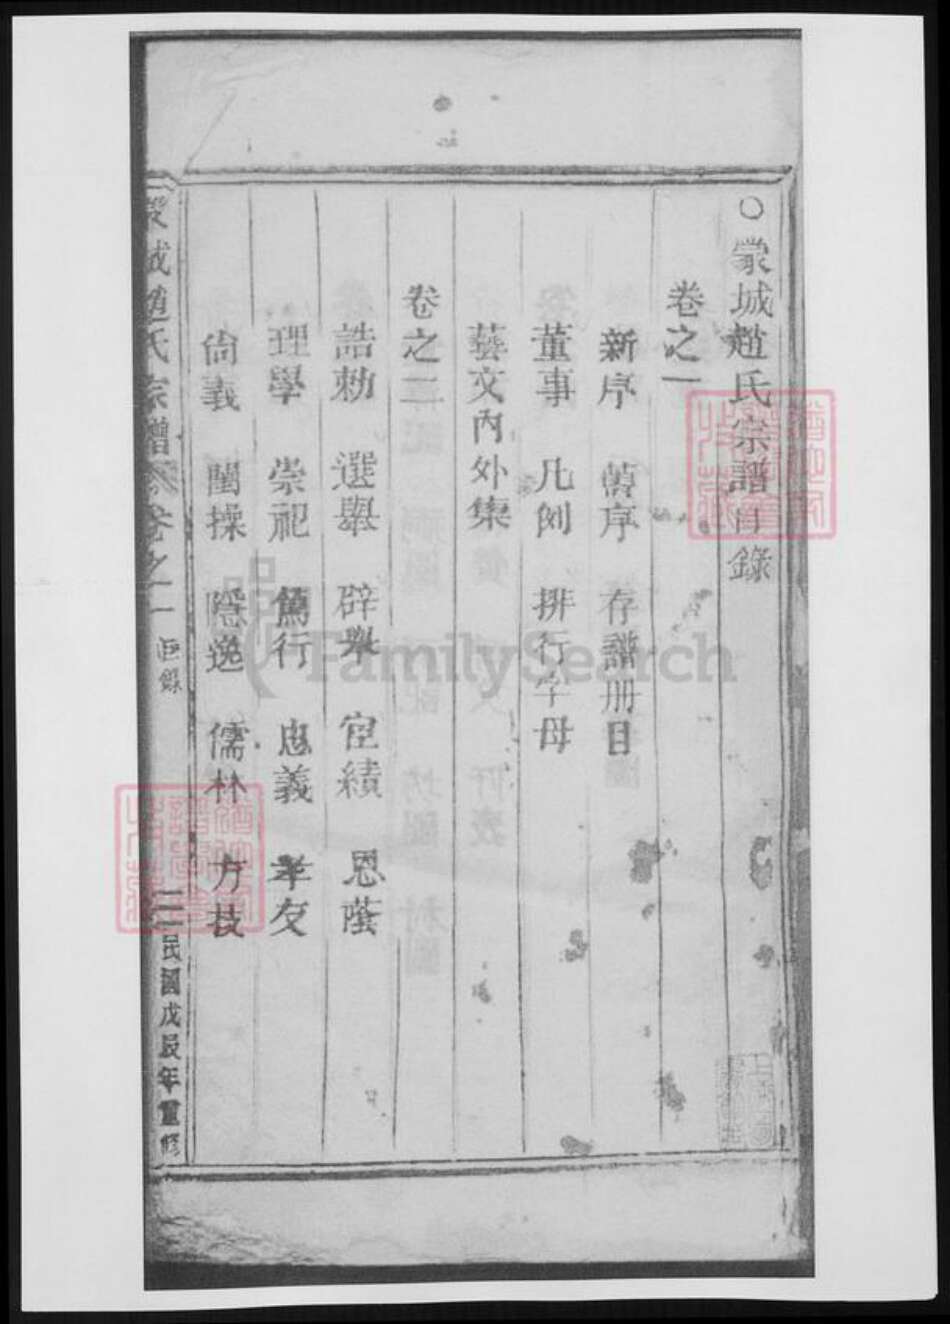 〇嚴城趙氏宗譜目錄
卷之一
新序 舊序 存譜冊目
董事 凡例 排行字母
藝文內外集
卷之二
誥勅 選舉 辟舉 宦績 恩蔭
理學 崇祀 篤行 忠義 孝友
尙義 閨操 隱逸 儒林 方技
城趙氏宗譜 卷之一 目錄 民國戊辰年重修
FamilySearch